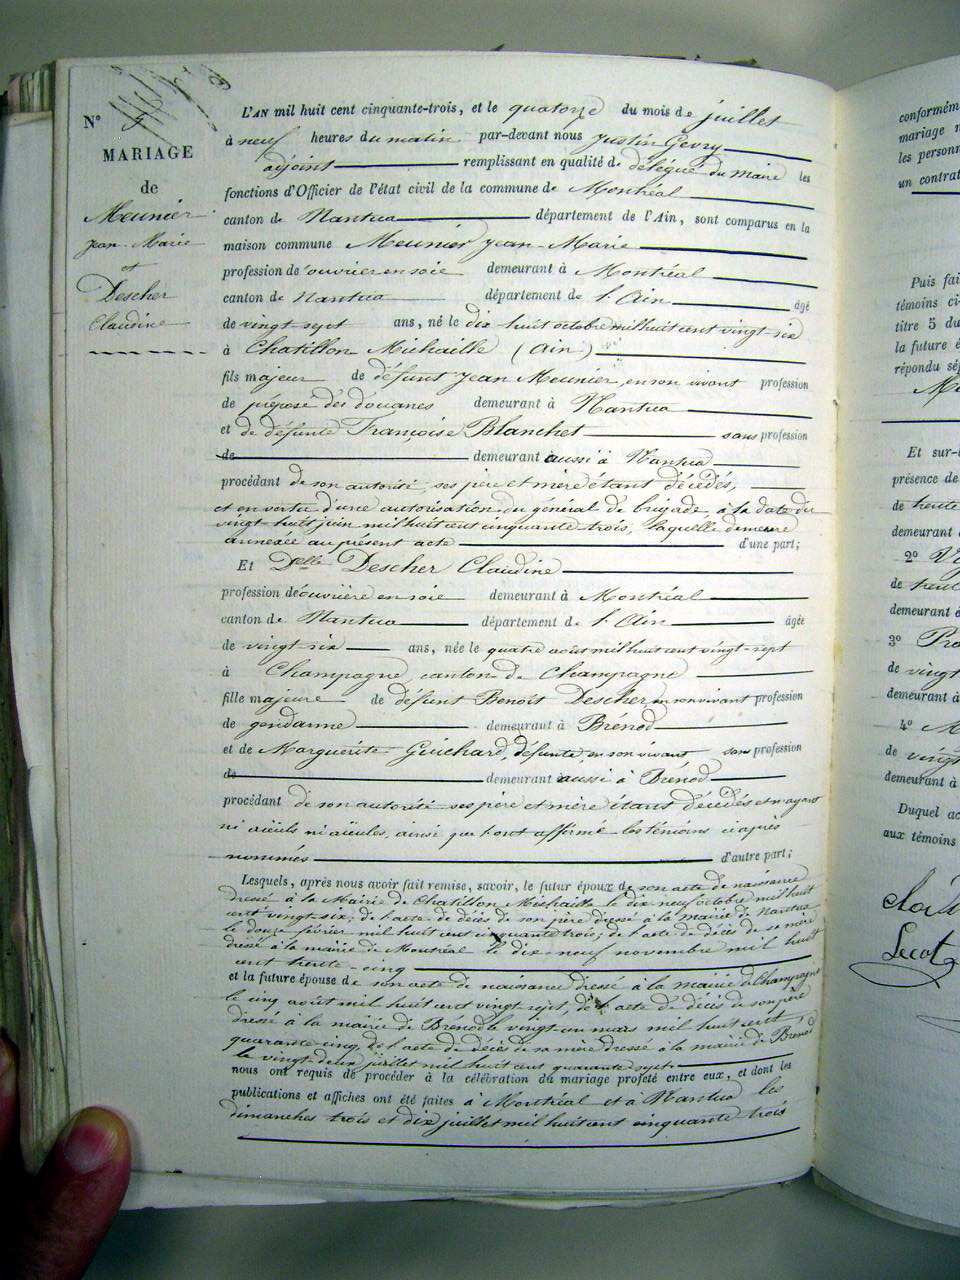 N° 5
MARIAGE
de
Meunier
Jean-Marie
et
Descher
Claudine
L'AN mil huit cent cinquante-trois, et le quatorze du mois de juillet
à neuf heures du matin par-devant nous Justin Gevry
adjoint remplissant en qualité de délégué du maire les
fonctions d'Officier de l'état civil de la commune de Montréal
canton de Nantua département de l'Ain, sont comparus en la
maison commune Meunier Jean-Marie
profession de ouvrier en soie demeurant à Montréal
canton de Nantua département de l'Ain âgé
de vingt sept ans, né le dix huit octobre mil huit cent vingt six
à Chatillon Michaille (Ain)
fils majeur de défunt Jean Meunier, en son vivant profession
de préposé des douanes demeurant à Nantua
et de défunte Françoise Blanchet sans profession
de demeurant aussi à Nantua
procédant de son autorité, ses père et mère étant décédés,
et en vertu d'une autorisation du général de brigade, à la date du
vingt huit juin mil huit cent cinquante trois, laquelle demeure
annexée au présent acte d'une part;
Et Delle Descher Claudine
profession de ouvrière en soie demeurant à Montréal
canton de Nantua département de l'Ain âgée
de vingt-six ans, née le quatre août mil huit cent vingt-sept
à Champagne, canton de Champagne
fille majeure de défunt Benoît Descher, en son vivant profession
de gendarme demeurant à Brénod
et de Marguerite Guichard, défunte, en son vivant sans profession
de demeurant aussi à Brénod
procédant de son autorité ses père et mère étant décédés et n'ayant
ni aïeuls ni aïeules, ainsi que l'ont affirmé les témoins ci après
nommés d'autre part;
Lesquels, après nous avoir fait remise, savoir, le futur époux de son acte de naissance
dressé à la Mairie de Chatillon Michaille le dix neuf octobre mil huit
cent vingt-six; de l'acte de décès de son père dressé à la mairie de Nantua
le douze février mil huit cent cinquante trois; de l'acte de décès de sa mère
dressé à la mairie de Montréal le dix-neuf novembre mil huit
cent trente-cinq
et la future épouse de son acte de naissance dressé à la mairie de Champagne
le cinq août mil huit cent vingt sept, de l'acte de décès de son père
dressé à la mairie de Brénod le vingt un mars mil huit cent
quarante cinq, de l'acte de décès de sa mère dressé à la mairie de Brénod
le vingt deux juillet mil huit cent quarante sept
nous ont requis de procéder à la célébration du mariage projeté entre eux, et dont les
publications et affiches ont été faites à Montréal et à Nantua les
dimanches trois et dix juillet mil huit cent cinquante trois
conformém
mariage
les personn
un contrat
Puis fai
témoins ci
titre 5 du
la future é
répondu sé
Et sur-
présence de
de trente
demeurant
2°
de
demeurant à
3°
de vingt
demeurant à
4°
de vingt
demeurant à
Duquel ac
aux témoins
Lecot